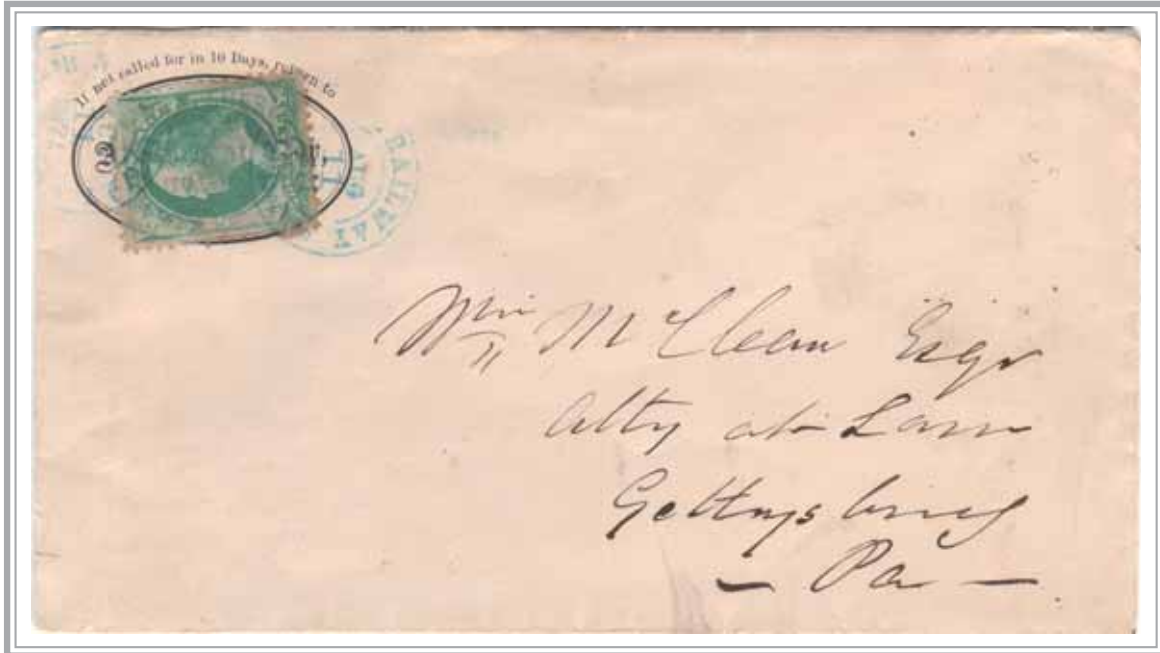 If not called for in 10 Days, return to
RAILWAY
AUG
11
Wm McClean Esqr
Atty at Law
Gettysburg
— Pa —